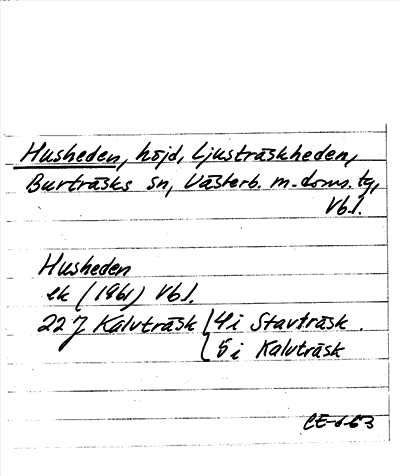 Husheden, höjd, Ljusträskheden,
Burträsks sn, Västerb. m. doms. tg,
Vbl.
Husheden
ek (1961) Vbl.
22 J Kalvträsk { 4 i Stavträsk.
5 i Kalvträsk
CE-63